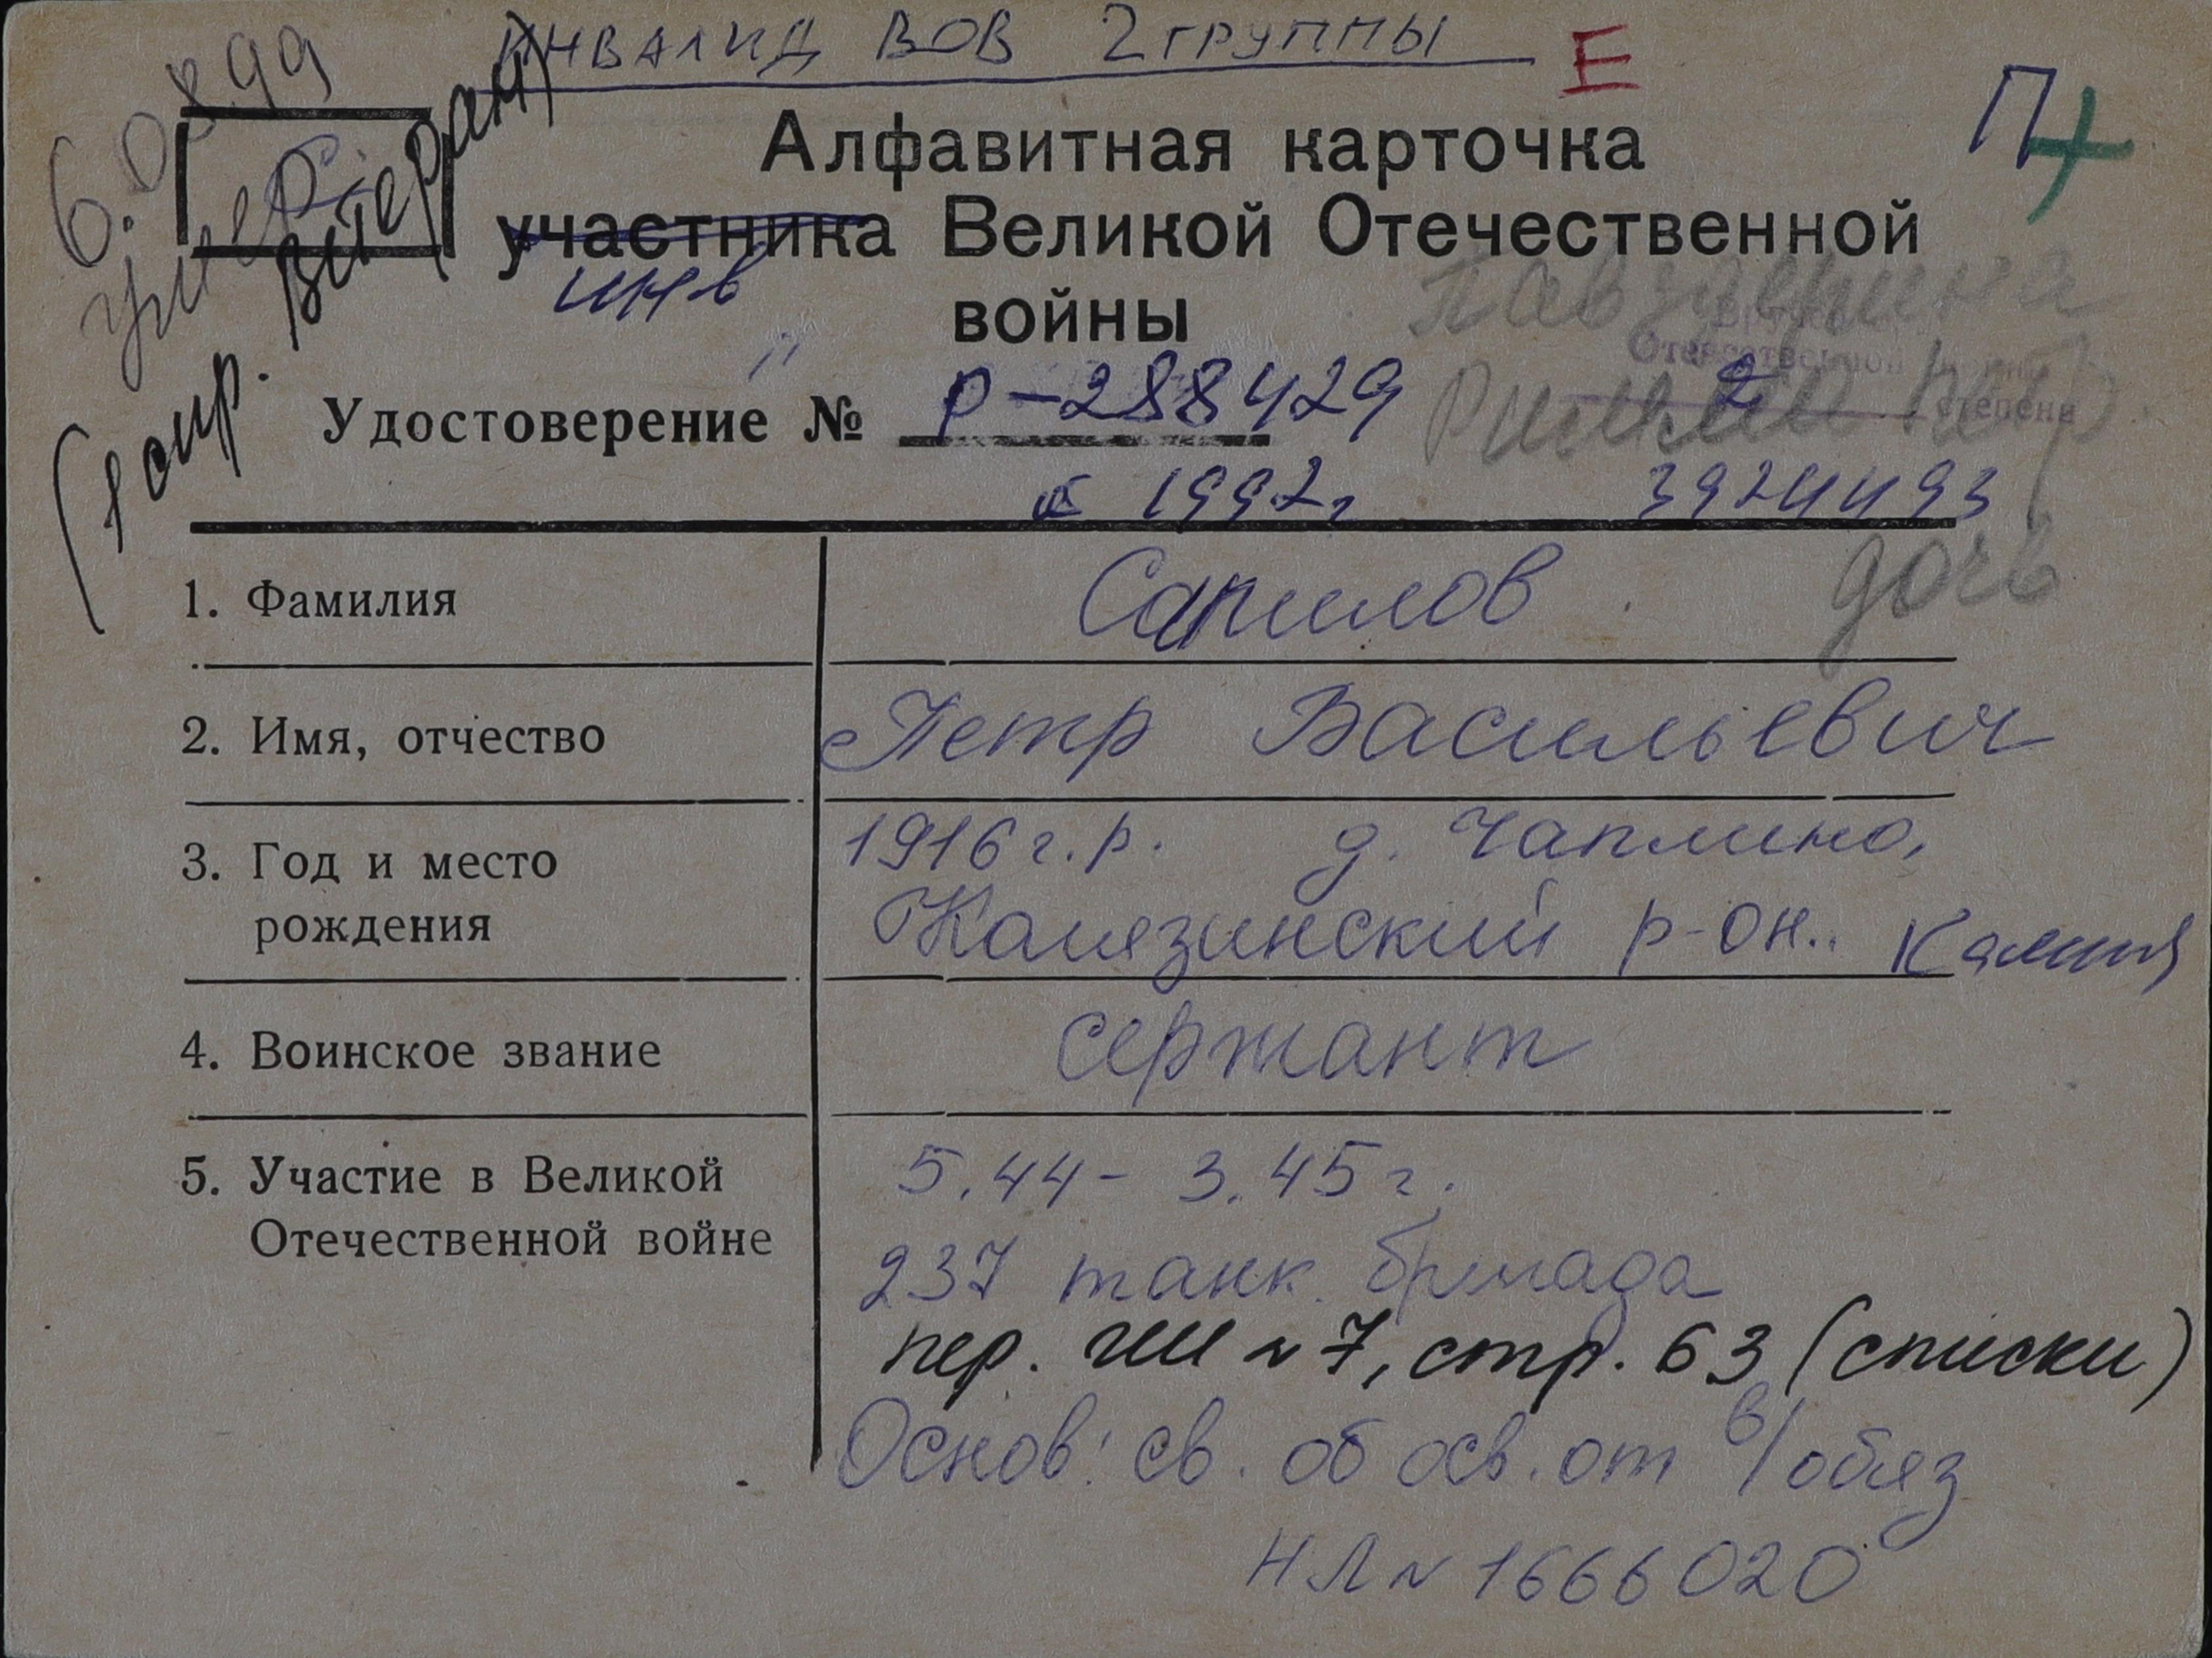 ИНВАЛИД ВОВ 2 ГРУППЫ Е
П
6.08.99
умер
(гоир. Ветеран)
Алфавитная карточка
участника Великой Отечественной
инв
войны
Отечественной
2 степени
Удостоверение № Р-288429
с 1992г 3924493
дочь
1. Фамилия Сапилов
2. Имя, отчество Петр Васильевич
3. Год и место 1916 г.р. д. Чаплино,
рождения Калязинский р-он.. Калин
4. Воинское звание сержант
5. Участие в Великой 5.44- 3.45 г.
Отечественной войне 237 танк. бригада
пер. ГШ № 7, стр. 63 (списки)
Основ: св. об осв. от в/обяз
НЛ № 1666020